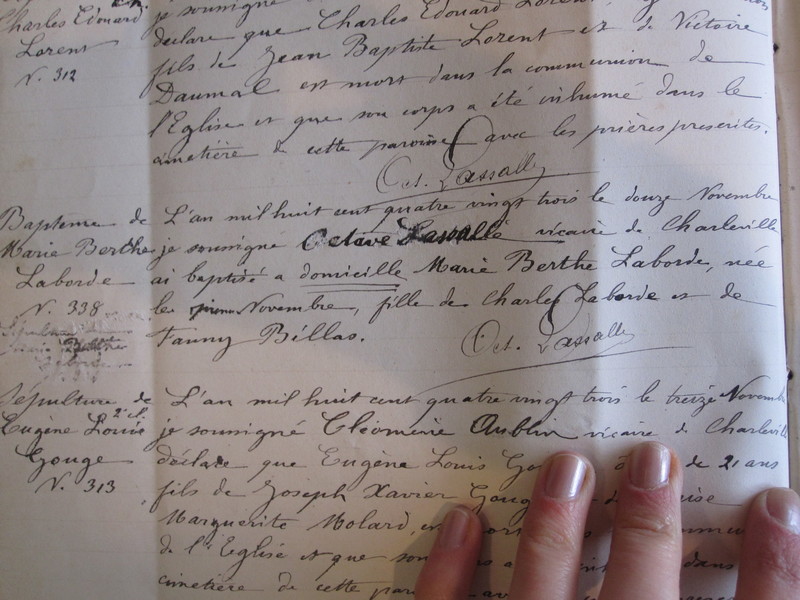 Charles Edouard
Lorent
N. 312
je soussigné
déclare que Charles Edouard Lorent,
fils de Jean Baptiste Lorent et de Victoire
Daumal est mort dans la communion de
l'Eglise et que son corps a été inhumé dans le
cimetière de cette paroisse avec les prières prescrites.
Oct. Lassalle
Bapteme de
Marie Berthe
Laborde
N. 338
L'an mil huit cent quatre vingt trois le douze Novembre
je soussigné Octave Lassalle vicaire de Charleville
ai baptisé a domicille Marie Berthe Laborde, née
le Novembre, fille de Charles Laborde et de
Fanny Béllas.
Oct. Lassalle
Sépulture de
2e cl.
Eugène Louis
Gouge
N. 313
L'an mil huit cent quatre vingt trois le treize Novembre
je soussigné Cléominie Aublin vicaire de Charleville
déclare que Eugène Louis de 21 ans
fils de Joseph Xavier Gouge
Marguerite Molard,
de l'Eglise et que son dans
cimetière de cette